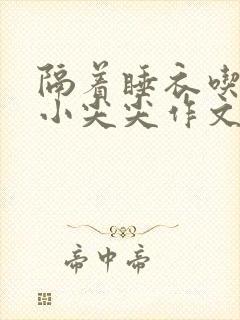 隔着睡衣喫
小尖尖作文
帝中帝